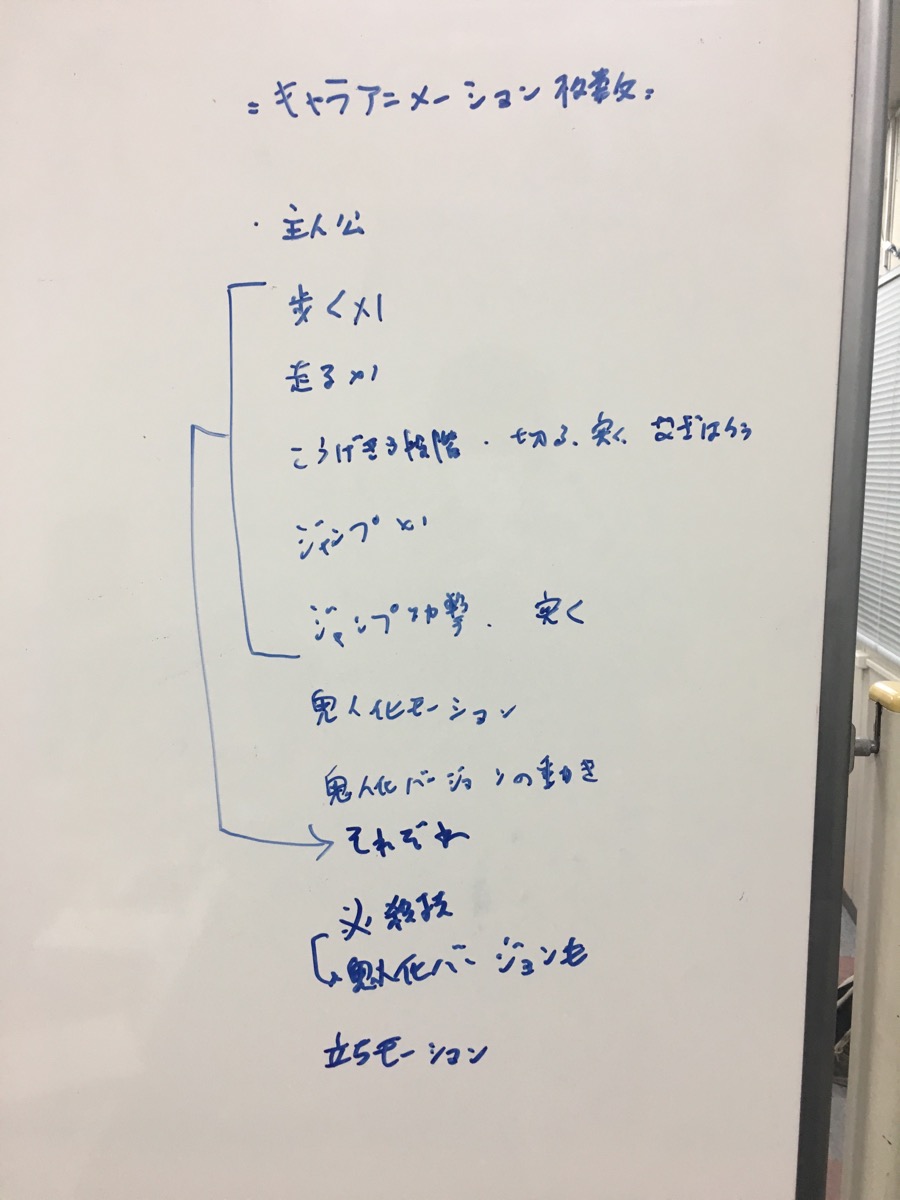 =キャラアニメーション枚数=
・主人公
歩く×1
走る×1
こうげき3段階・切る、突く、なぎはらう
ジャンプ×1
ジャンプ攻撃. 突く
鬼人化モーション
鬼人化バージョンの動き
それぞれ
必殺技
鬼人化バージョンも
立ちモーション